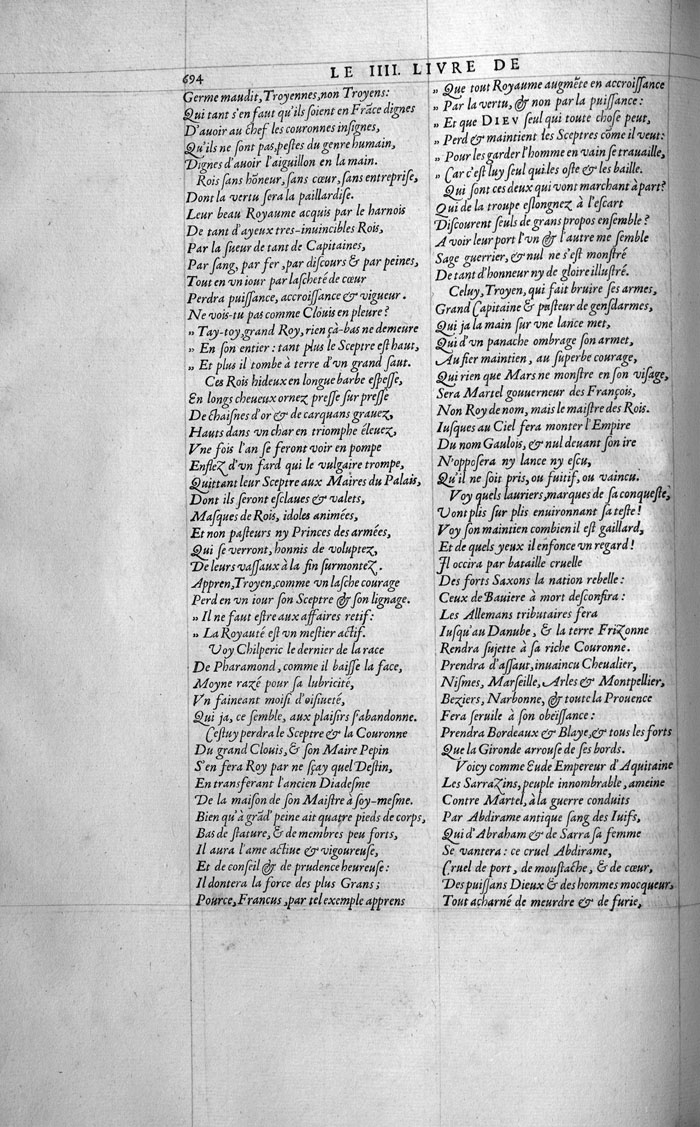 694
LE IIII. LIVRE DE
Germe maudit, Troyennes, non Troyens:
Qui tant s'en faut qu'ils ſoient en Frãce dignes
D'auoir au chef les couronnes inſignes,
Qu'ils ne ſont pas, peſtes du genre humain,
Dignes d'auoir l'aiguillon en la main.
Rois ſans hõneur, ſans cœur, ſans entrepriſe,
Dont la vertu ſera la paillardiſe.
Leur beau Royaume acquis par le harnois
De tant d'ayeux tres-inuincibles Rois,
Par la ſueur de tant de Capitaines,
Par ſang, par fer, par diſcours & par peines,
Tout en vn iour par laſcheté de cœur
Perdra puiſſance, accroiſſance & vigueur.
Ne vois-tu pas comme Clouis en pleure?
" Tay-toy, grand Roy, rien çà-bas ne demeure
" En ſon entier: tant plus le Sceptre eſt haut,
" Et plus il tombe à terre d'vn grand ſaut.
Ces Rois hideux en longue barbe eſpeſſe,
En longs cheueux ornez preſſe ſur preſſe
De chaiſnes d'or & de carquans grauez,
Hauts dans vn char en triomphe éleuez,
Vne fois l'an ſe feront voir en pompe
Enflez d'vn fard qui le vulgaire trompe,
Quittant leur Sceptre aux Maires du Palais,
Dont ils ſeront eſclaues & valets,
Maſques de Rois, idoles animées,
Et non paſteurs ny Princes des armées,
Qui ſe verront, honnis de voluptez,
De leurs vaſſaux à la fin ſurmontez.
Appren, Troyen, comme vn laſche courage
Perd en vn iour ſon Sceptre & ſon lignage.
" Il ne faut eſtre aux affaires retif:
" La Royauté eſt vn meſtier actif.
Voy Chilperic le dernier de la race
De Pharamond, comme il baiſſe la face,
Moyne razé pour ſa lubricité,
Vn faineant moiſi d'oiſiueté,
Qui ja, ce ſemble, aux plaiſirs s'abandonne.
Ceſtuy perdra le Sceptre & la Couronne
Du grand Clouis, & ſon Maire Pepin
S'en fera Roy par ne ſçay quel Deſtin,
En transferant l'ancien Diadeſme
De la maiſon de ſon Maiſtre à ſoy-meſme.
Bien qu'à grãd' peine ait quatre pieds de corps,
Bas de ſtature, & de membres peu forts,
Il aura l'ame actiue & vigoureuſe,
Et de conſeil & de prudence heureuſe:
Il dontera la force des plus Grans;
Pource, Francus, par tel exemple apprens
" Que tout Royaume augmẽte en accroiſſance
" Par la vertu, & non par la puiſſance:
" Et que DIEV ſeul qui toute choſe peut,
" Perd & maintient les Sceptres cõme il veut:
" Pour les garder l'homme en vain ſe trauaille,
" Car c'eſt luy ſeul qui les oſte & les baille.
Qui ſont ces deux qui vont marchant à part?
Qui de la troupe eslongnez à l'eſcart
Diſcourent ſeuls de grans propos enſemble?
A voir leur port l'vn & l'autre me ſemble
Sage guerrier, & nul ne s'eſt monſtré
De tant d'honneur ny de gloire illuſtré.
Celuy, Troyen, qui fait bruire ſes armes,
Grand Capitaine & paſteur de genſdarmes,
Qui ja la main ſur vne lance met,
Qui d'vn panache ombrage ſon armet,
Au fier maintien, au ſuperbe courage,
Qui rien que Mars ne monſtre en ſon viſage,
Sera Martel gouuerneur des François,
Non Roy de nom, mais le maiſtre des Rois.
Iuſques au Ciel fera monter l'Empire
Du nom Gaulois, & nul deuant ſon ire
N'oppoſera ny lance ny eſcu,
Qu'il ne ſoit pris, ou fuitif, ou vaincu.
Voy quels lauriers, marques de ſa conqueſte,
Vont plis ſur plis enuironnant ſa teſte!
Voy ſon maintien combien il eſt gaillard,
Et de quels yeux il enfonce vn regard!
Il occira par bataille cruelle
Des forts Saxons la nation rebelle:
Ceux de Bauiere à mort desconfira:
Les Allemans tributaires fera
Iuſqu'au Danube, & la terre Frizonne
Rendra ſujette à ſa riche Couronne.
Prendra d'aſſaut, inuaincu Cheualier,
Niſmes, Marſeille, Arles & Montpellier,
Beziers, Narbonne, & toute la Prouence
Fera ſeruile à ſon obeïſſance:
Prendra Bordeaux & Blaye, & tous les forts
Que la Gironde arrouſe de ſes bords.
Voicy comme Eude Empereur d'Aquitaine
Les Sarrazins, peuple innombrable, ameine
Contre Martel, à la guerre conduits
Par Abdirame antique ſang des Iuifs,
Qui d'Abraham & de Sarra ſa femme
Se vantera: ce cruel Abdirame,
Cruel de port, de mouſtache, & de cœur,
Des puiſſans Dieux & des hommes mocqueur,
Tout acharné de meurdre & de furie,